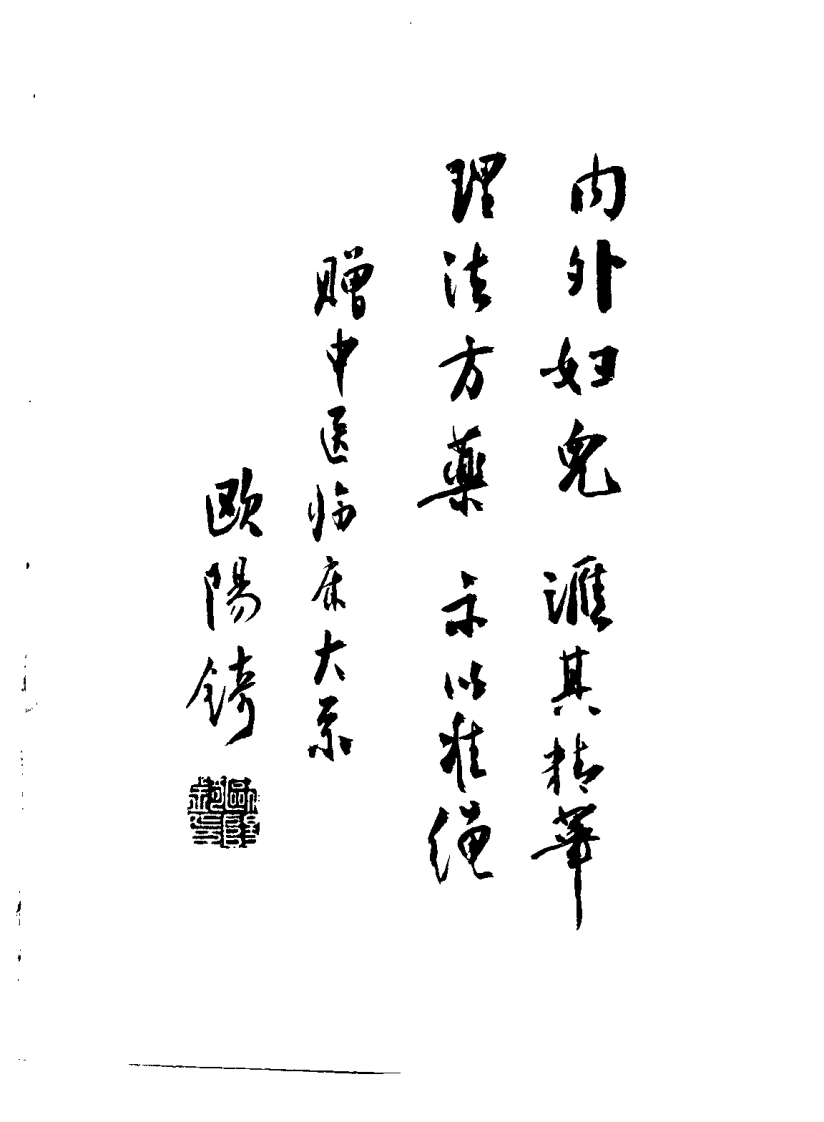 内外妇兒 滙其精華
理法方藥 示以准绳
赠中医临床大系
歐陽錡